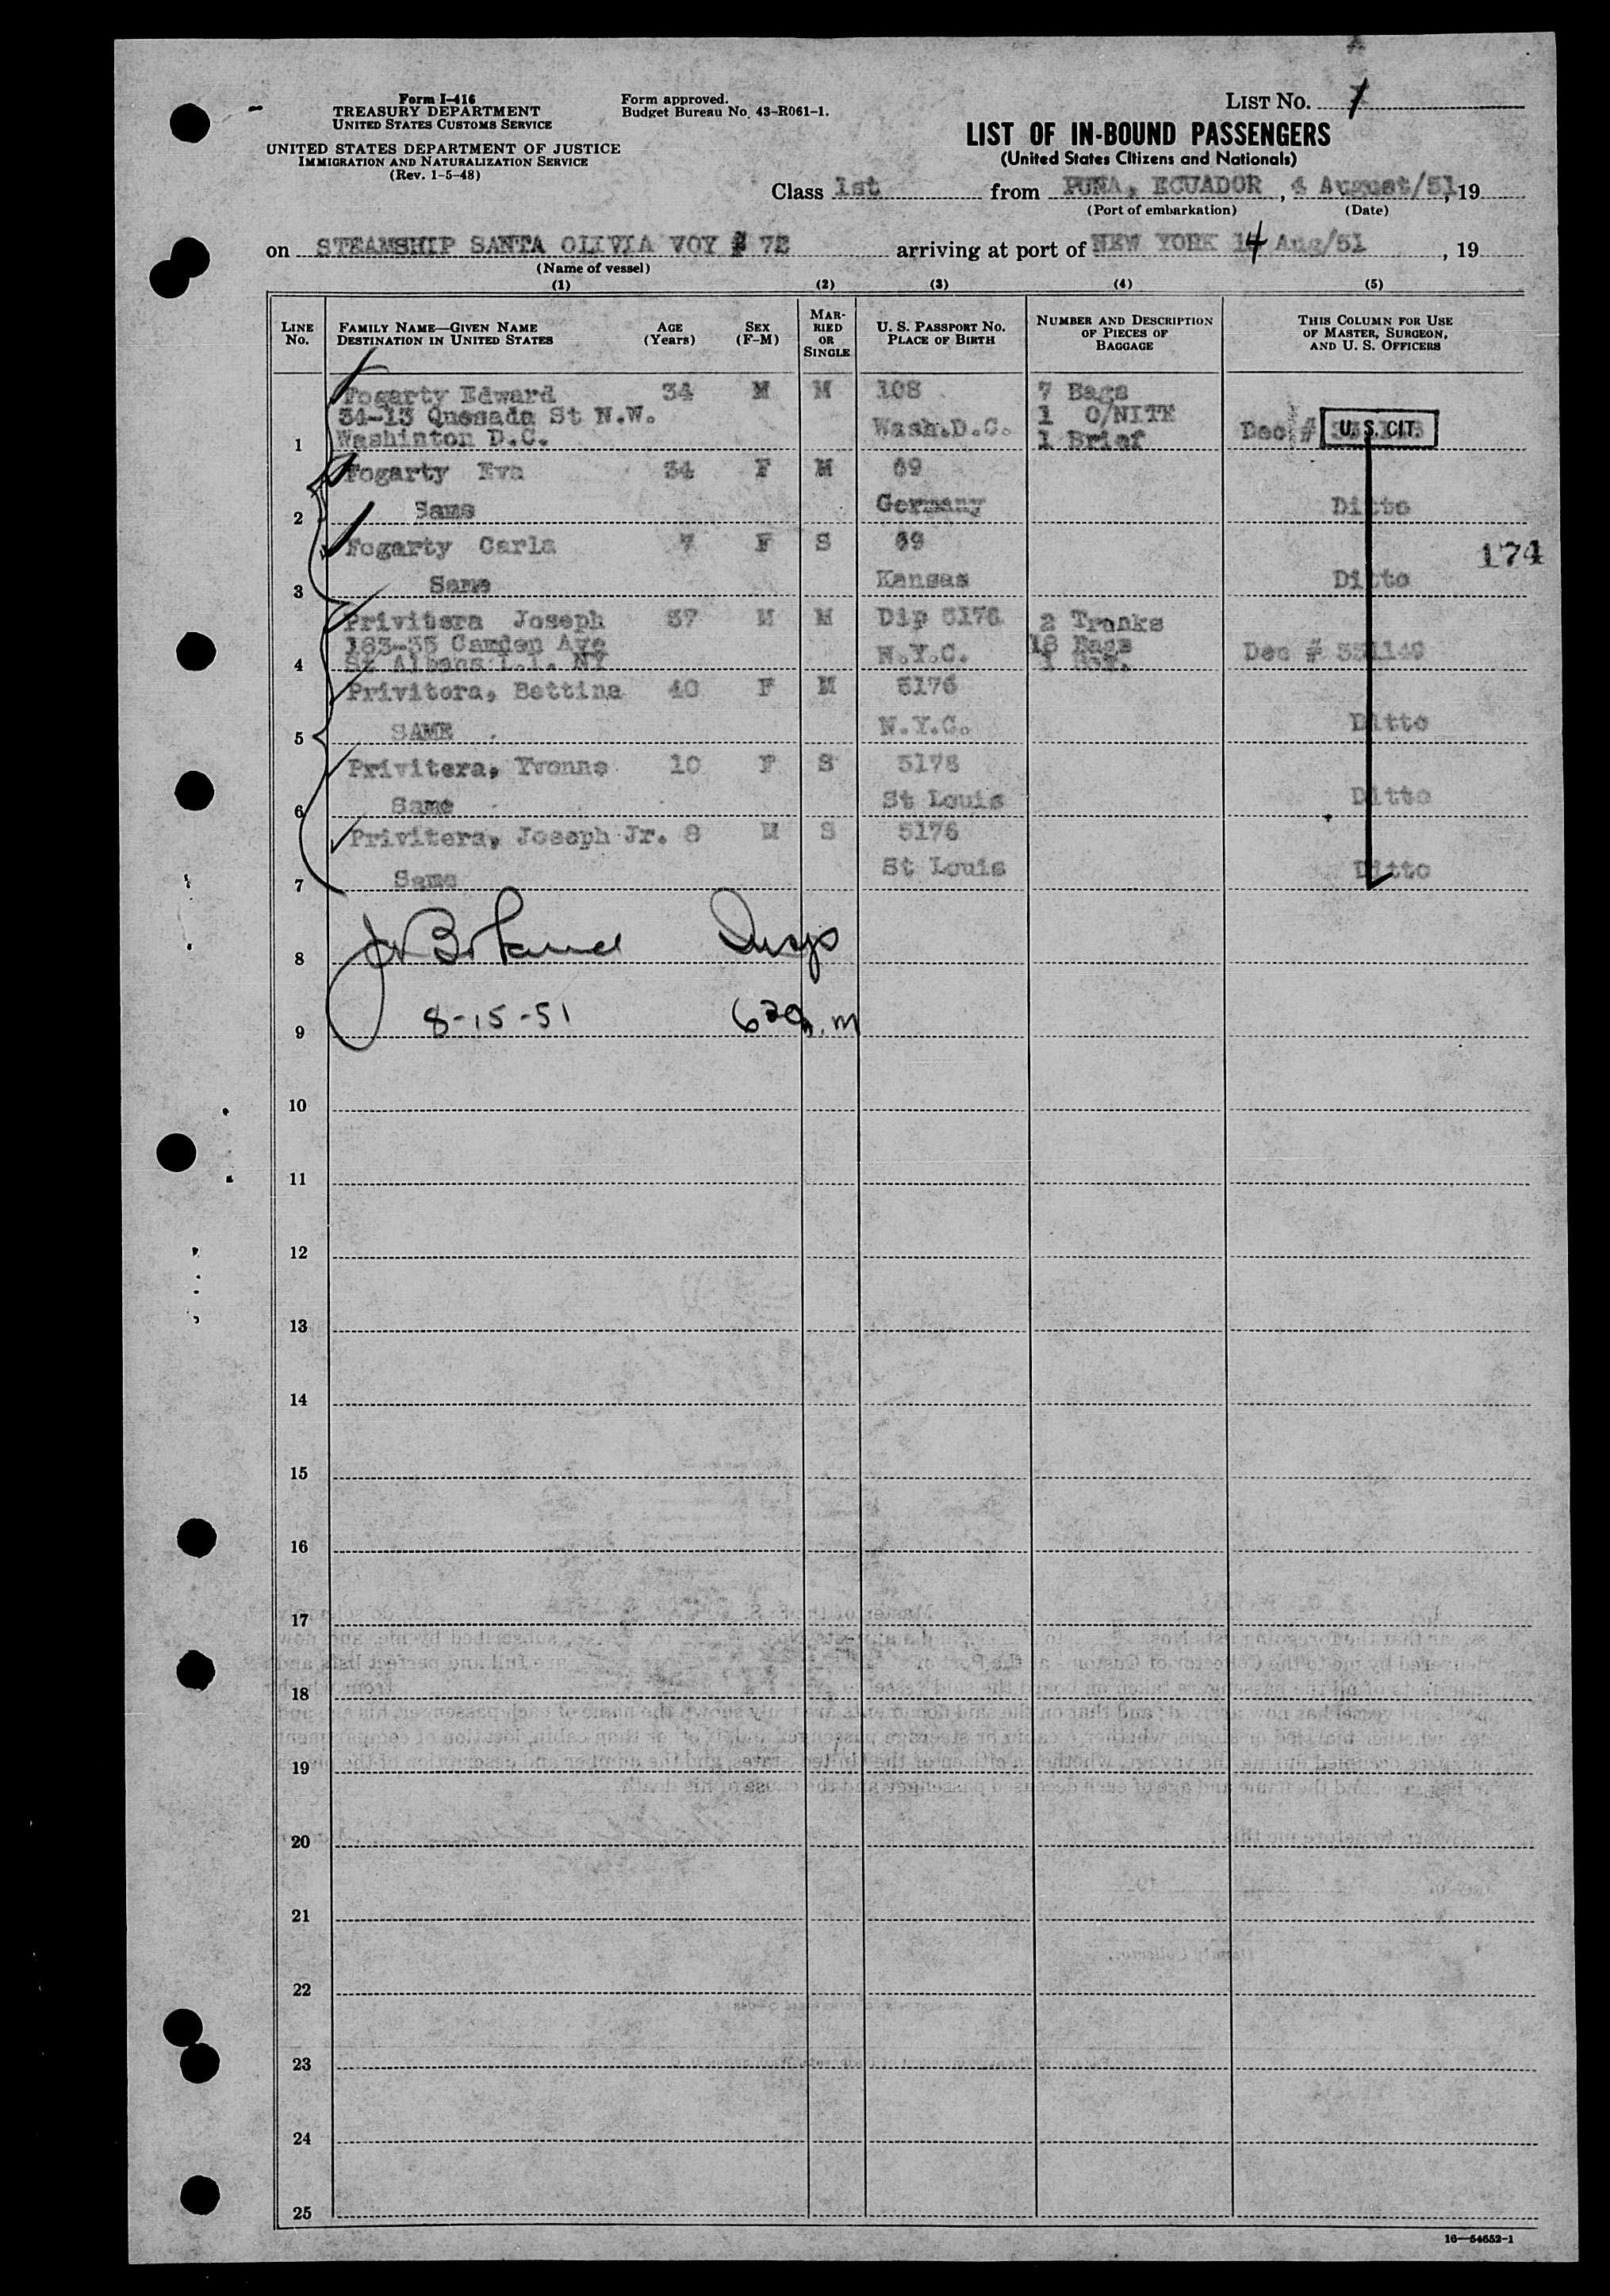 Form I-416
TREASURY DEPARTMENT
UNITED STATES CUSTOMS SERVICE
UNITED STATES DEPARTMENT OF JUSTICE
IMMIGRATION AND NATURALIZATION SERVICE
(Rev. 1-5-48)
Form approved.
Budget Bureau No. 43-R061-1.
LIST No. 1
LIST OF IN-BOUND PASSENGERS
(United States Citizens and Nationals)
Class 1st from PUNA, ECUADOR, 4 August/51, 19
(Port of embarkation) (Date)
on STEAMSHIP SANTA OLIVIA VOY # 72 arriving at port of NEW YORK 14 Aug/51, 19
(Name of vessel)
(1) (2) (3) (4) (5)
LINE No. FAMILY NAME—GIVEN NAME DESTINATION IN UNITED STATES AGE (Years) SEX (F-M) MARRIED OR SINGLE U. S. PASSPORT NO. PLACE OF BIRTH NUMBER AND DESCRIPTION OF PIECES OF BAGGAGE THIS COLUMN FOR USE OF MASTER, SURGEON, AND U. S. OFFICERS
Fogarty Edward 34 M M 108 7 Bags
34-13 Quesada St N.W. 1 O/NITE
1 Washinton D.C. Wash.D.C. 1 Brief Dec # U. S. CIT.
Fogarty Eva 34 F M 69
2 Same Germany Ditto
Fogarty Carla 7 F S 69
174
3 Same Kansas Ditto
Privitera Joseph 37 M M Dip 5176 2 Trunks
163-35 Camden Ave 18 Bags
4 St Albans L.I. NY N.Y.C. 1 Dec # 331149
Privitera, Bettina 40 F M 5176
5 SAME N.Y.C. Ditto
Privitera, Yvonne 10 F S 5176
6 Same St Louis Ditto
Privitera, Joseph Jr. 8 M S 5176
7 Same St Louis Ditto
8 Insp
9 8-15-51 6 30 a.m
10
11
12
13
14
15
16
17
18
19
20
21
22
23
24
25
16—54652-1